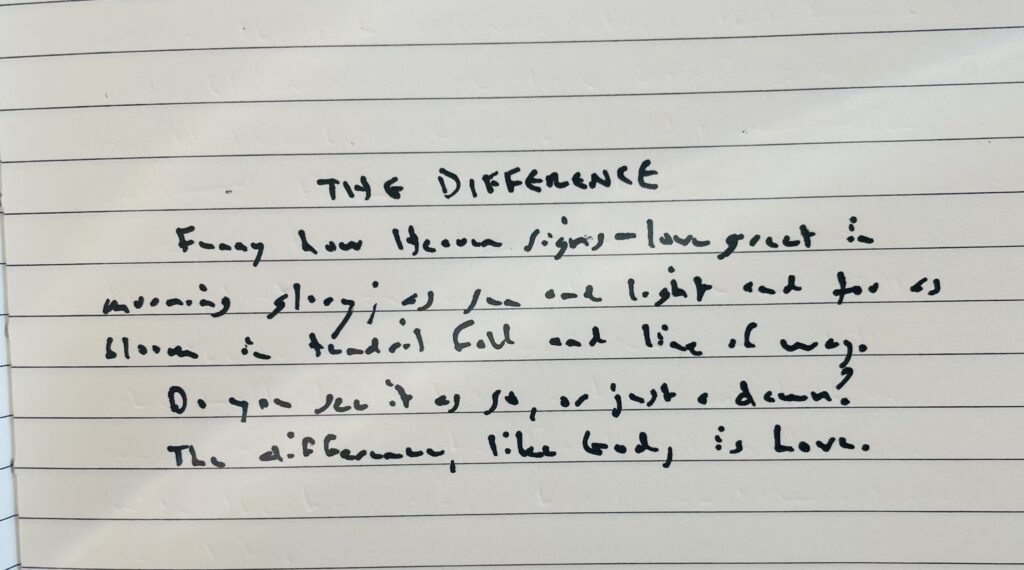 THE DIFFERENCE
Funny how Heaven signs - love great in
morning glory; as sun and light and for as
bloom in tendril fold and line of way.
Do you see it as so, or just a dawn?
The difference, like God, is Love.